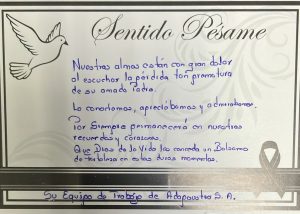 Sentido Pésame
Nuestras almas están con gran dolor
al escuchar la pérdida tan prematura
de su amado Padre.
Lo conocíamos, apreciábamos y admirábamos.
Por siempre permanecerá en nuestros
recuerdos y corazones.
Que Dios de la Vida les conceda un Bálsamo
de fortaleza en estos duros momentos.
Su Equipo de Trabajo de S.A.